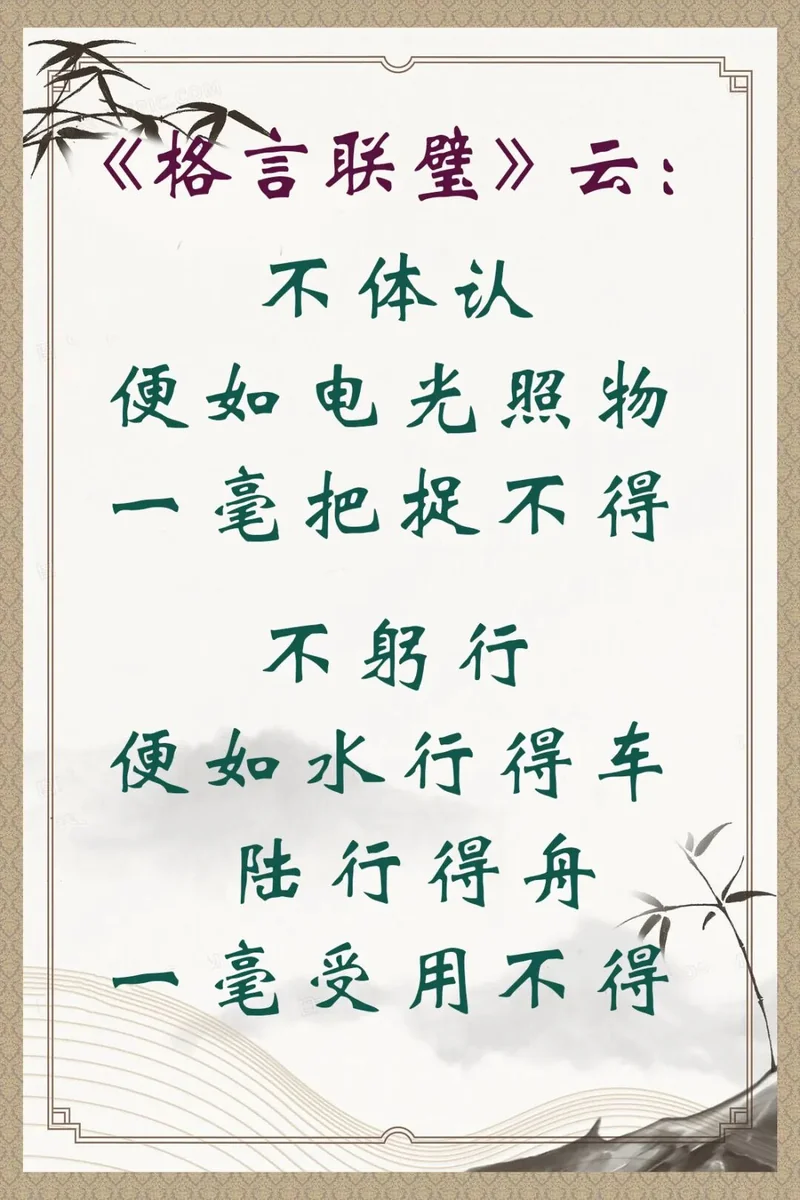 《格言联璧》云：
不体认
便如电光照物
一毫把捉不得
不躬行
便如水行得车
陆行得舟
一毫受用不得